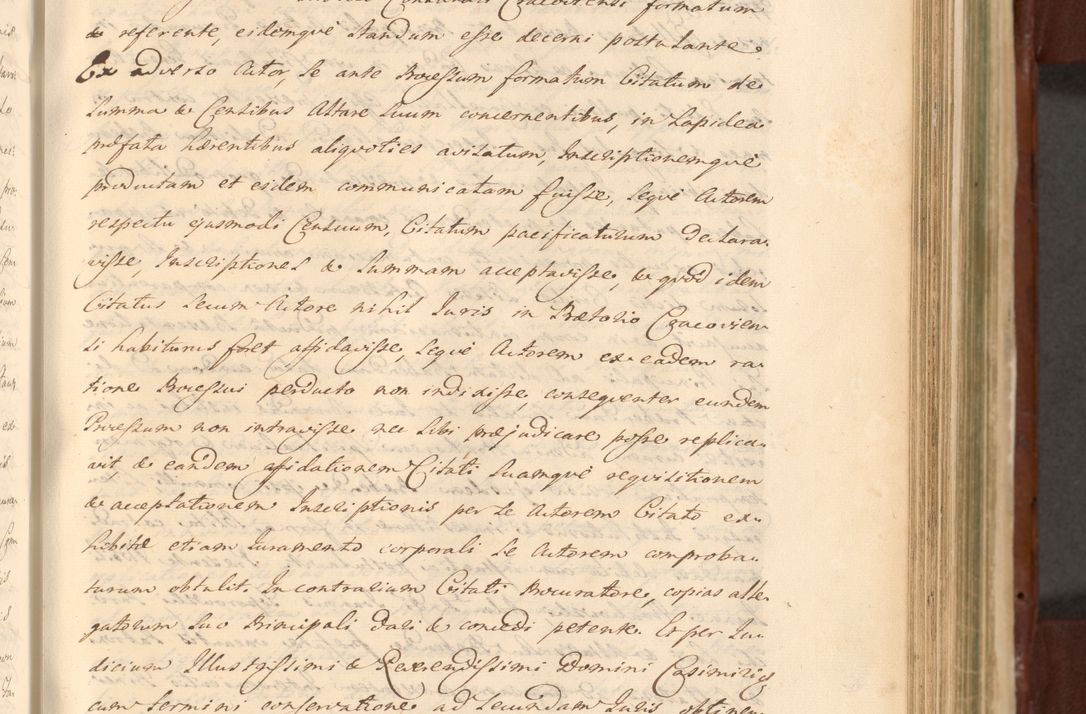 formatum
& referente, eidemque standum esse decerni postulante.
Ex adverso Actor, se ante Processum formatum Citatum de
Summa & Censibus Altare Suum concernentibus, in Lapidea
præfata hærentibus aliquoties avisatum, Inscriptionemque
productam et eidem communicatam fuisse, Seque Actorem
respectu ejusmodi Censuum, Citatum pacificaturum declara-
visse, Inscriptiones & Summam acceptavisse, & quod idem
Citatus Secum Actore nihil Juris in Prætorio Cracovien-
si habiturus foret affidavisse, Seque Actorem ex eadem ra-
tione Processui perducto non institisse, consequenter eundem
Processum non intravisse nec Sibi præjudicare posse replica-
vit, & eandem affidationem Citati Suamque requisitionem
& acceptationem Inscriptionis per Se Actorem Citato ex-
hibitæ etiam Juramento corporali Se Actorem comproba-
turum obtulit. In contrarium Citati Procuratore, copias alle-
gatorum Suo Principali dari & concedi petente. Et per Ju-
dicium Illustrissimi & Reverendissimi Domini Casimirus
cum Termini conservatione ad Secundam Juris obtinen